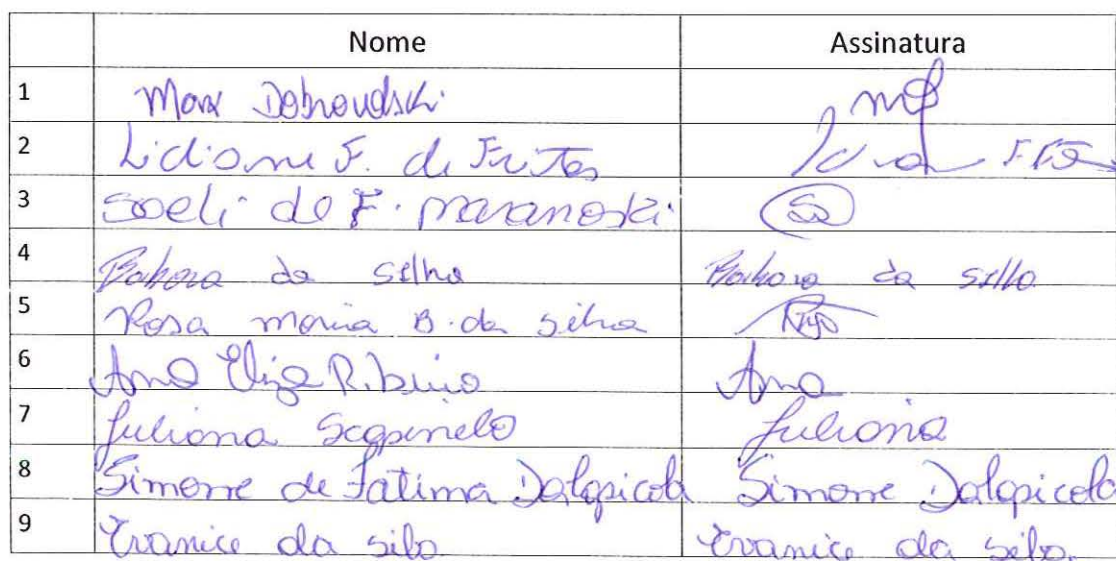 Nome Assinatura
1 Marx Dobrovolski
2 Lidiane F. de Freitas
3 Soeli de F. maranoski
4 Barbara da silva Barbara da silva
5 Rosa maria B. da silva
6 Ana Eliza Ribeiro Ana
7 Juliana Scopinelo Juliana
8 Simone de Fatima Dalapicola Simone Dalapicola
9 Evanice da silva Evanice da silva